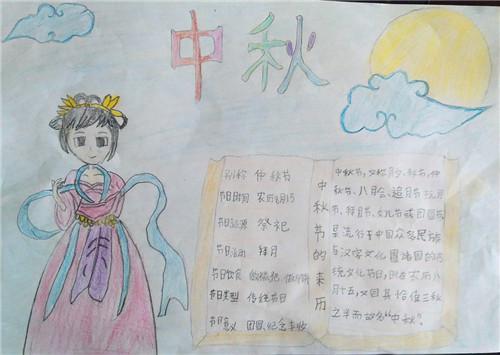 中秋
别称 仲秋节
节日时间 农历8月15
节日起源 祭祀
节日活动 拜月
节日饮食 做
节日类型 传统节日
节日意义 团圆,纪念丰收
中秋节的来历
中秋节,又称月夕、秋节、仲
秋节、八月会、追月节、玩月
节、拜月节、女儿节或团圆节
是流行于中国众多民族
与汉字文化圈诸国的传
统文化节日,时在农历八
月十五;又因其恰值三秋
之半,而故名“中秋”。